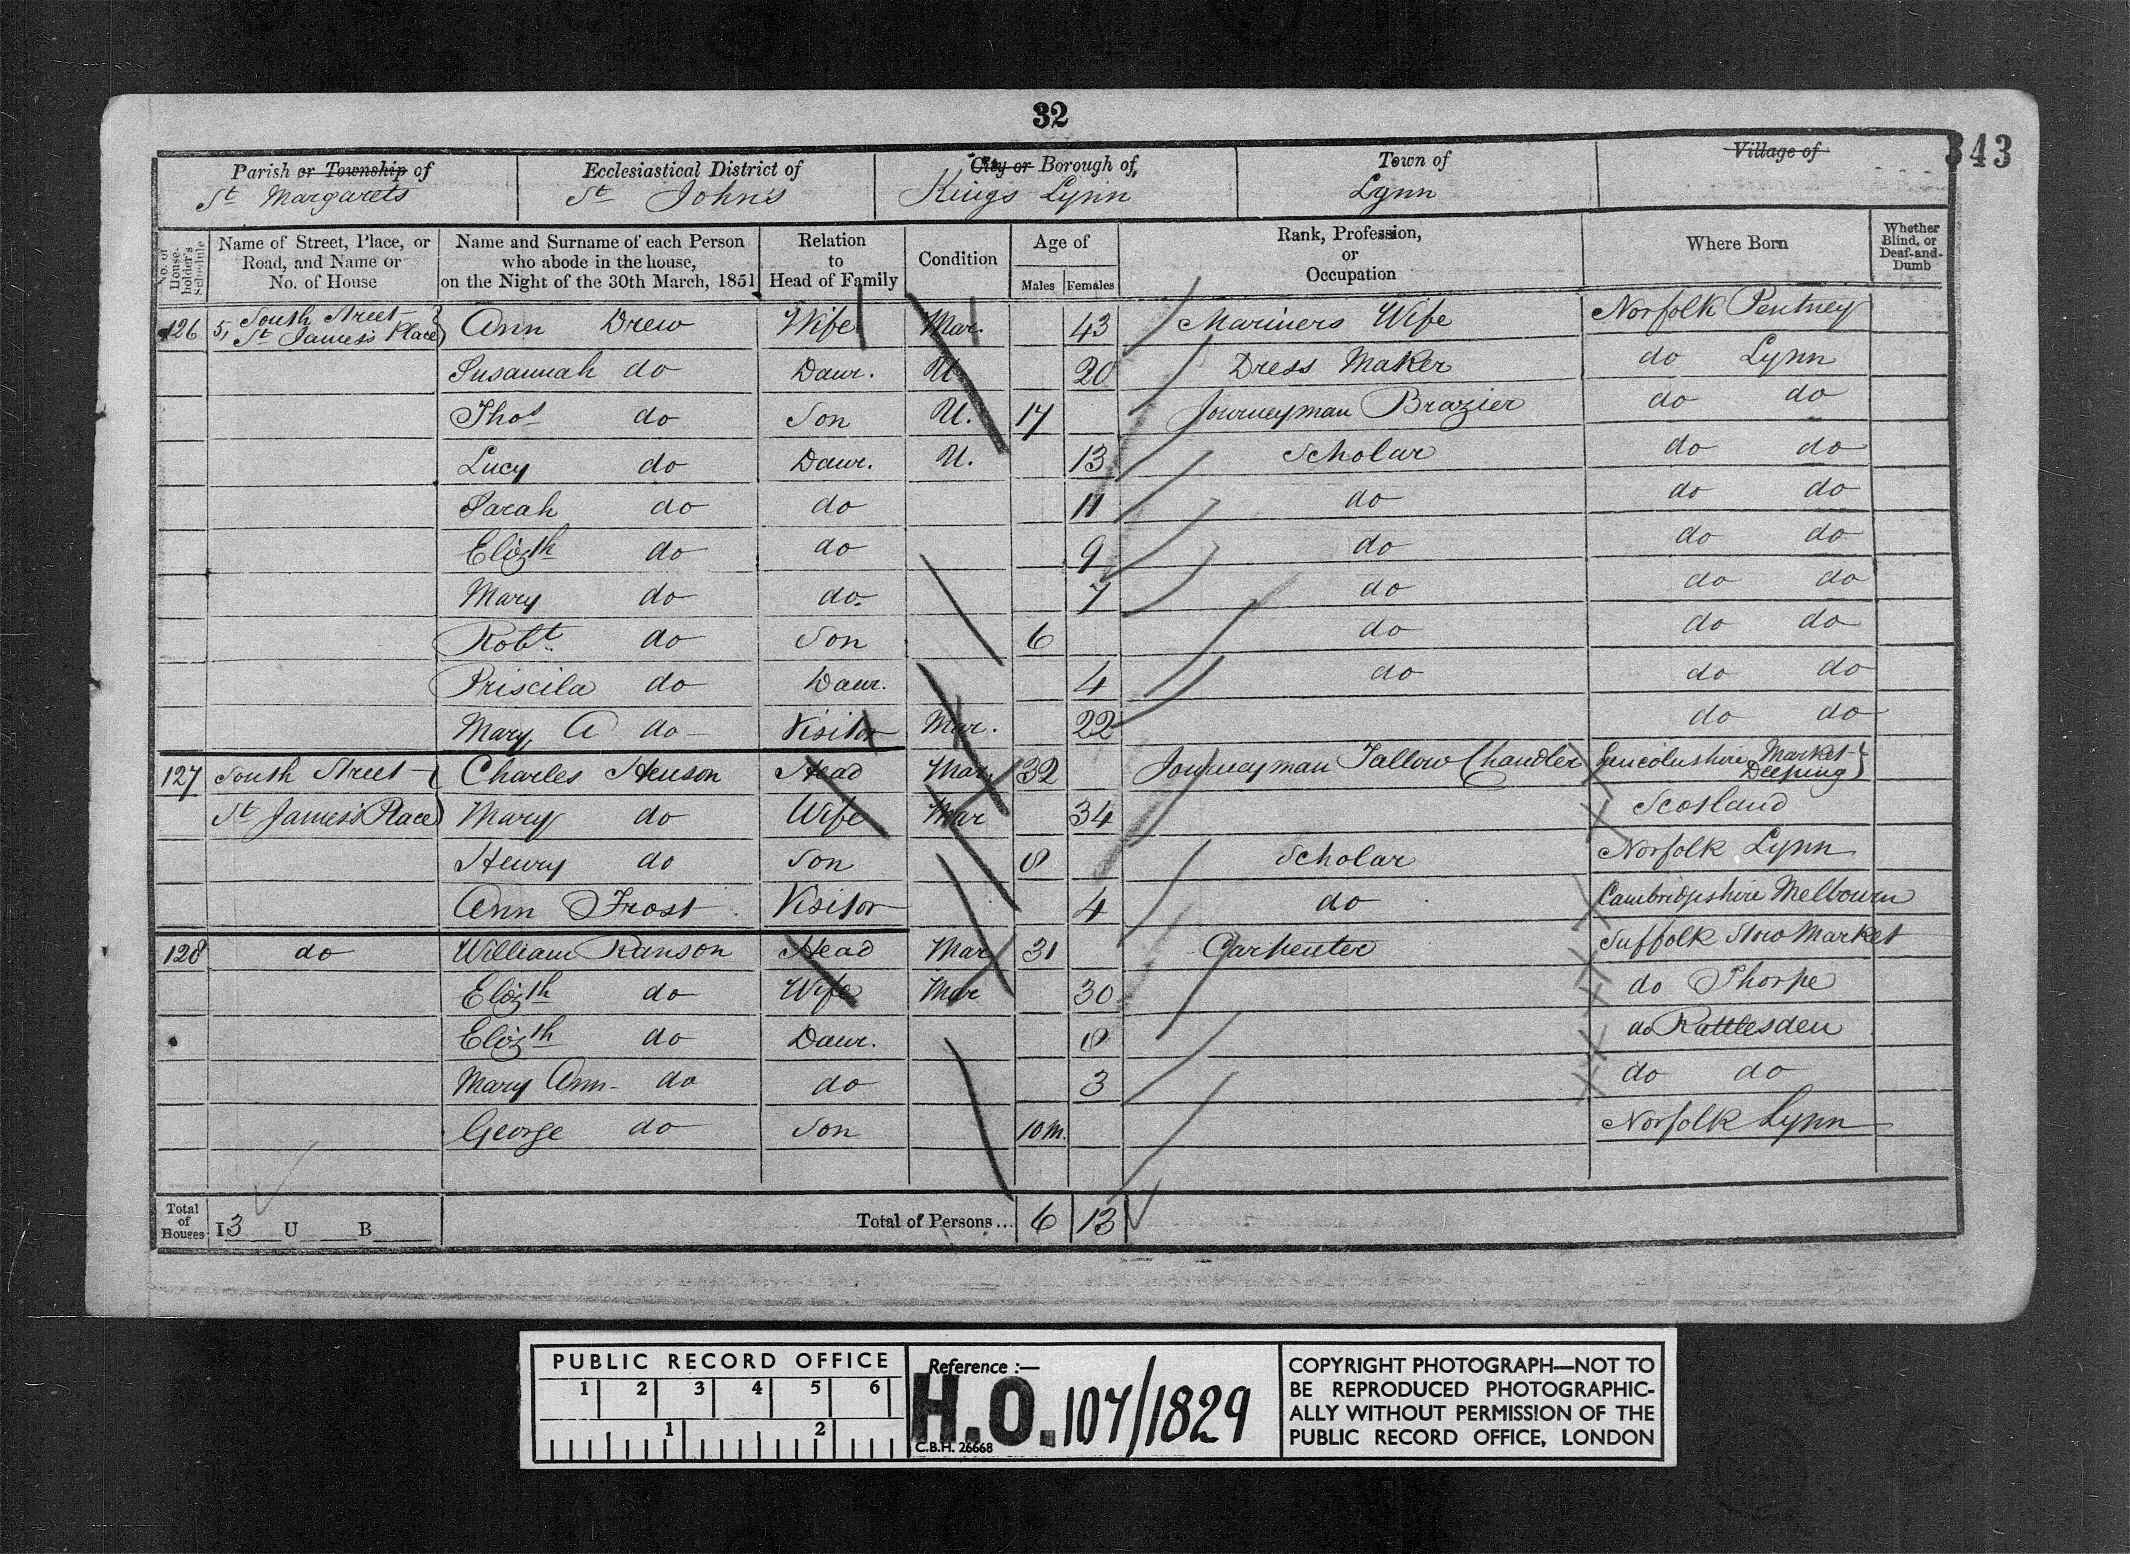 32
343
Parish or Township of
St Margarets
Ecclesiastical District of
St Johns
City or Borough of
Kings Lynn
Town of
Lynn
Village of
No. of House-holder's Schedule
Name of Street, Place, or Road, and Name or No. of House
Name and Surname of each Person who abode in the house, on the Night of the 30th March, 1851
Relation to Head of Family
Condition
Age of
Males
Females
Rank, Profession, or Occupation
Where Born
Whether Blind, or Deaf-and-Dumb
126 5, South Street St James's Place Ann Drew Wife Mar. 43 Mariners Wife Norfolk Pentney
Susannah do Daur. U 20 Dress Maker do Lynn
Thos do Son U. 17 Journeyman Brazier do do
Lucy do Daur. U. 13 Scholar do do
Sarah do do 11 do do do
Elizth do do 9 do do do
Mary do do. 7 do do do
Robt. do Son 6 do do do
Priscila do Daur. 4 do do do
Mary A do Visitor Mar. 22 do do
127 South Street Charles Henson Head Mar 32 Journeyman Tallow Chandler Lincolnshire Market Deeping
St James's Place Mary do Wife Mar 34 Scotland
Henry do Son 8 Scholar Norfolk Lynn
Ann Frost Visitor 4 do Cambridgeshire Melbourn
128 do William Ranson Head Mar 31 Carpenter Suffolk Stow Market
Elizth do Wife Mar 30 do Thorpe
Elizth do Daur. 8 do Rattlesden
Mary Ann do do 3 do do
George do Son 10 m. Norfolk Lynn
Total of Houses I 3 U B Total of Persons... 6 13
PUBLIC RECORD OFFICE
1 2 3 4 5 6
1 2
Reference :—
H.O. 107/1829
C.B.H. 26668
COPYRIGHT PHOTOGRAPH—NOT TO
BE REPRODUCED PHOTOGRAPHIC-
ALLY WITHOUT PERMISSION OF THE
PUBLIC RECORD OFFICE, LONDON